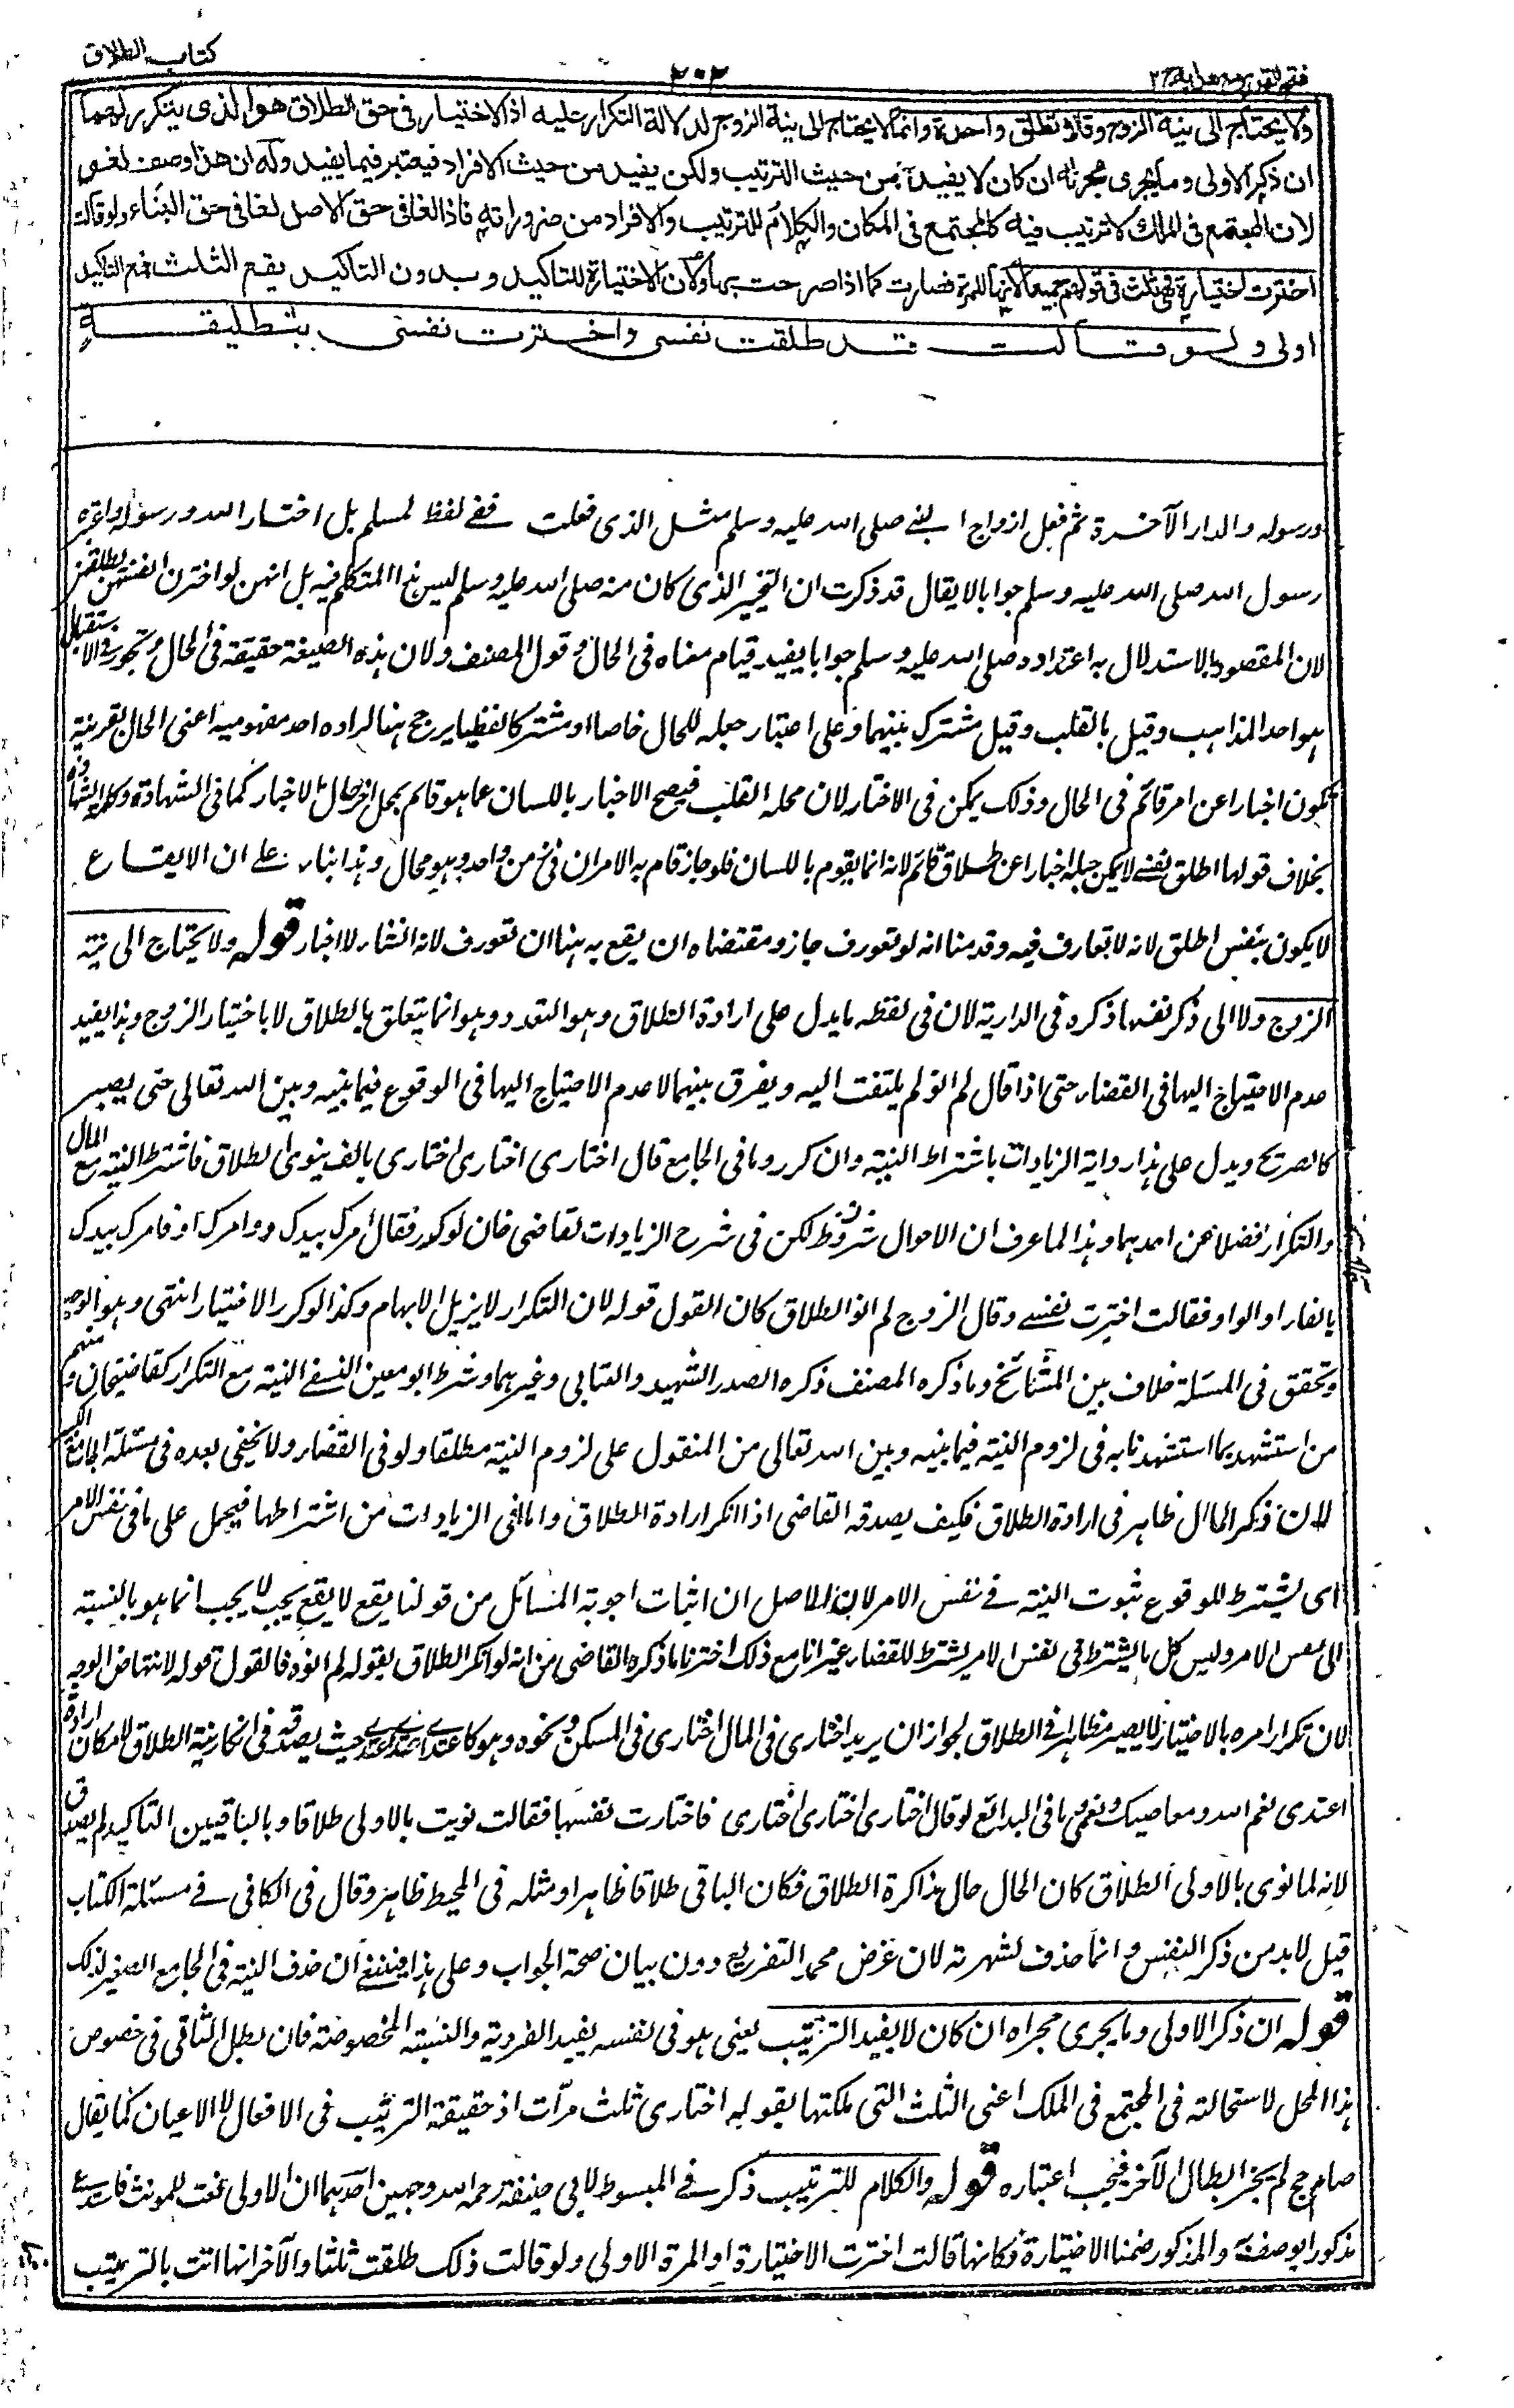 كتاب الطلاق
٢٠٢
فتح القدير مع هدايه ج ٢
ولا يحتاج الى نية الزوج وقالا تطلق واحدة وانما لا يحتاج الى نية الزوج لدلالة التكرار عليه اذ الاختيار فى حق الطلاق هو الذى يتكرر لهما
ان ذكر الاولى وما يجرى مجراه ان كان لا يفيد من حيث الترتيب ولكن يفيد من حيث الافراد فيعتبر فيما يفيد وله ان هذا وصف لغو
لان المجتمع فى الملك لا ترتيب فيه كالمجتمع فى المكان والكلام للترتيب والافراد من ضروراته فاذا لغا فى حق الاصل لغا فى حق البناء ولو قالت
اخترت اختيارة فهى ثلث فى قولهم جميعا لانها للمرة فصارت كما اذا صرحت بها ولان الاختيارة للتاكيد وبدون التاكيد يقع الثلث فمع التاكيد
اولى ولو قالت قد طلقت نفسى واخترت نفسى بتطليقة
ورسوله والدار الآخرة ثم فعل ازواج النبى صلى الله عليه وسلم مثل الذى فعلت ففى لفظ لمسلم بل اختار الله ورسوله واعتبره
رسول الله صلى الله عليه وسلم جوابا لا يقال قد ذكرت ان التخيير الذى كان منه صلى الله عليه وسلم ليس هذا المتكلم فيه بل انهن لو اخترن انفسهن يطلقهن
لان المقصود بالاستدلال به اعتداده صلى الله عليه وسلم جوابا يفيد قيام معناه فى الحال وقول المصنف ولان هذه الصيغة حقيقة فى الحال وتجوز فى الاستقبال
هو احد المذاهب وقيل بالقلب وقيل مشترك بينهما وعلى اعتبار جعله للحال خاصا او مشتركا لفظيا يرجح هنا ارادة احد مفهوميه اعنى الحال بقرينة
يكون اخبارا عن امر قائم فى الحال وذلك يمكن فى الاختيار لان محله القلب فيصح الاخبار باللسان عما هو قائم بمحل آخر حال الاخبار كما فى الشهادة وكلمة الشهادة
بخلاف قولها اطلق نفسى لا يمكن جعله اخبارا عن طلاق قائم لانه انما يقوم باللسان فلو جاز قام به الامران فى زمن واحد وهو محال وهذا بناء على ان الايقاع
لا يكون بنفس اطلق لانه لا تعارف فيه وقدمنا انه لو تعورف جاز ومقتضاه ان يقع به هنا ان تعورف لانه انشاء لا اخبار قوله ولا يحتاج الى نية
الزوج ولا الى ذكر نفسها ذكره فى الدراية لان فى لفظه ما يدل على ارادة الطلاق وهو التعدد وهو انما يتعلق بالطلاق لا باختيار الزوج وهذا يفيد
عدم الاحتياج اليها فى القضاء حتى اذا قال لم انو لم يلتفت اليه ويفرق بينهما لا عدم الاحتياج اليها فى الوقوع فيما بينه وبين الله تعالى حتى يصير
كالصريح ويدل على هذا رواية الزيادات باشتراط النية وان كرر وما فى الجامع قال اختارى اختارى اختارى بالف ينوى الطلاق فاشترط النية مع المال
والتكرار فضلا عن احدهما وهذا لما عرف ان الاحوال شروط لكن فى شرح الزيادات لقاضى خان لو كرر فقال امرك بيدك وامرك او فامرك بيدك
بالفاء او الواو فقالت اخترت نفسى وقال الزوج لم انو الطلاق كان القول قوله لان التكرار لا يزيل الابهام وكذا لو كرر الاختيار انتهى وهو الوجه
وتحقق فى المسئلة خلاف بين المشائخ وما ذكره المصنف ذكره الصدر الشهيد والعتابى وغيرهما وشرط ابو معين النسفى النية مع التكرار كقاضيخان ومنهم
من استشهد بما استشهدنا به فى لزوم النية فيما بينه وبين الله تعالى من المنقول على لزوم النية مطلقا ولو فى القضاء ولا يخفى بعده فى مسئلة الجامع الكبير
لان ذكر المال ظاهر فى ارادة الطلاق فكيف يصدقه القاضى اذا انكر ارادة الطلاق واما فى الزيادات من اشتراطها فيحمل على ما فى نفس الامر
اى يشترط للوقوع ثبوت النية فى نفس الامر لان الاصل ان اثبات اجوبة المسائل من قولنا يقع لا يقع يجب لا يجب انما هو بالنسبة
الى نفس الامر وليس كل ما يشترط فى نفس الامر يشترط للقضاء غير انا مع ذلك اخترنا ما ذكره القاضى من انه لو انكر الطلاق بقوله لم انوه فالقول قوله لانتهاض الوجه
لان تكرار امره بالاختيار لا يصيره ظاهرا فى الطلاق لجواز ان يريد اختارى فى المال اختارى فى المسكن ونحوه وهو كاعتدى اعتدى اعتدى حيث يصدقه فى انكار نية الطلاق لامكان ارادة
اعتدى نعم الله ومعاصيك ونعمى وما فى البدائع لو قال اختارى اختارى اختارى فاختارت نفسها فقالت نويت بالاولى طلاقا وبالباقيين التاكيد لم يصدق
لانه لما نوى بالاولى الطلاق كان الحال حال مذاكرة الطلاق فكان الباقى طلاقا ظاهرا ومثله فى المحيط ظاهر وقال فى الكافى فى مسئلة الكتاب
قيل لابد من ذكر النفس وانما حذف لشهرته لان غرض محمد التفريع دون بيان صحة الجواب وعلى هذا فينبغى ان حذف النية فى الجامع الصغير لذلك
قوله ان ذكر الاولى وما يجرى مجراه ان كان لا يفيد الترتيب يعنى هو فى نفسه يفيد الفردية والنسبة المخصوصة فان بطل الثانى فى خصوص
هذا المحل لاستحالته فى المجتمع فى الملك اعنى الثلث التى ملكتها بقوله اختارى ثلث مرات اذ حقيقة الترتيب فى الافعال لا الاعيان كما يقال
صام حج لم يجز ابطال الآخر فيجب اعتباره قوله والكلام للترتيب ذكر فى المبسوط لابى حنيفة رحمه الله وجهين احدهما ان الاولى نعت للمونث فاستدعى
مذكورا يوصف به والمذكور ضمنا الاختيارة فكانها قالت اخترت الاختيارة او المرة الاولى ولو قالت ذلك طلقت ثلثا والآخر انها اتت بالترتيب